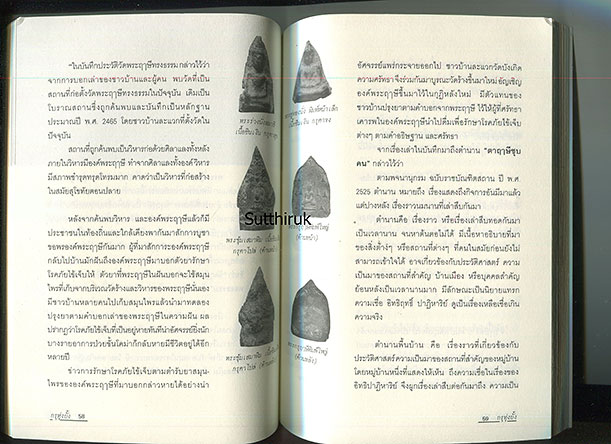 "ในบันทึกประวัติวัดพระฤๅษีทรงธรรม กล่าวไว้ว่า
จากการบอกเล่าของชาวบ้านและผู้คน พบวัดที่เป็น
สถานที่ก่อตั้งวัดพระฤๅษีทรงธรรมในปัจจุบัน เดิมเป็น
โบราณสถานซึ่งถูกค้นพบและบันทึกเป็นหลักฐาน
ประมาณปี พ.ศ. 2465 โดยชาวบ้านละแวกที่ตั้งวัดใน
ปัจจุบัน
สถานที่ถูกค้นพบเป็นวิหารก่อด้วยศิลาแลงทั้งหลัง
ภายในวิหารมีองค์พระฤๅษี ทำจากศิลาแลงทั้งองค์วิหาร
มีสภาพชำรุดทรุดโทรมมาก คาดว่าเป็นวิหารที่ก่อสร้าง
ในสมัยสุโขทัยตอนปลาย
หลังจากค้นพบวิหาร และองค์พระฤๅษีแล้วก็มี
ประชาชนในท้องถิ่นและใกล้เคียงพากันมาสักการะบูชา
ขอพรองค์พระฤๅษีกันมาก ผู้ที่มาสักการะองค์พระฤๅษี
กลับไปบ้านมักฝันถึงองค์พระฤๅษีมาบอกตัวยารักษา
โรคภัยไข้เจ็บให้ ตัวยาที่พระฤๅษีในฝันบอกจะใช้สมุน
ไพรที่เก็บจากบริเวณวัดร้างและวิหารของพระฤๅษีนั่นเอง
มีชาวบ้านหลายคนไปเก็บสมุนไพรแล้วนำมาทดลอง
ปรุงยาตามคำบอกเล่าของพระฤๅษีในความฝัน ผล
ปรากฏว่าโรคภัยไข้เจ็บที่เป็นอยู่หายทันทีน่าอัศจรรย์ยิ่งนัก
บางรายอาการป่วยขั้นโคม่าก็กลับหายมีชีวิตอยู่ได้อีก
หลายปี
ข่าวการรักษาโรคภัยไข้เจ็บตามตำรับยาสมุน
ไพรขององค์พระฤๅษีที่มาบอกกล่าวหายได้อย่างน่า
กรุทุ่งยั้ง 58
Sutthiruk
อัศจรรย์แพร่กระจายออกไป ชาวบ้านละแวกวัดบังเกิด
ความศรัทธาจึงร่วมกันมาบูรณะวัดร้างขึ้นมาใหม่ อัญเชิญ
องค์พระฤๅษีขึ้นมาไว้ในกุฏิหลังใหม่ มีตัวแทนของ
ชาวบ้านปรุงยาตามคำบอกจากพระฤๅษี ไว้ให้ผู้ที่ศรัทธา
เคารพในองค์พระฤๅษีนำไปดื่มเพื่อรักษาโรคภัยไข้เจ็บ
ต่างๆ ตามคำอธิษฐาน และศรัทธา
จากเรื่องเล่าในบันทึกมาถึงตำนาน "ตาฤๅษีชุบ
คน" กล่าวไว้ว่า
ตามพจนานุกรม ฉบับราชบัณฑิตสถาน ปี พ.ศ.
2525 ตำนาน หมายถึง เรื่องแสดงถึงกิจการอันมีมาแล้ว
แต่ปางหลัง เรื่องราวนมนานที่เล่าสืบกันมา
ตำนานคือ เรื่องราว หรือเรื่องเล่าสืบทอดกันมา
เป็นเวลานาน จนหาต้นตอไม่ได้ มีเนื้อหาอธิบายที่มา
ของสิ่งต่างๆ หรือสถานที่ต่างๆ ที่คนในสมัยก่อนยังไม่
สามารถเข้าใจได้ อาจเกี่ยวข้องกับประวัติศาสตร์ ความ
เป็นมาของสถานที่สำคัญ บ้านเมือง หรือบุคคลสำคัญ
ย้อนหลังเป็นเวลานานมาก มีลักษณะเป็นนิยายแทรก
ความเชื่อ อิทธิฤทธิ์ ปาฏิหาริย์ ดูเป็นเรื่องเหลือเชื่อเกิน
ความจริง
ตำนานพื้นบ้าน คือ เรื่องราวที่เกี่ยวข้องกับ
ประวัติศาสตร์ความเป็นมาของสถานที่สำคัญของหมู่บ้าน
โดยหมู่บ้านหนึ่งที่แสดงให้เห็น ถึงความเชื่อในเรื่องของ
อิทธิปาฏิหาริย์ จึงผูกเรื่องเล่าสืบต่อกันมาถึง ความเป็น
กรุทุ่งยั้ง